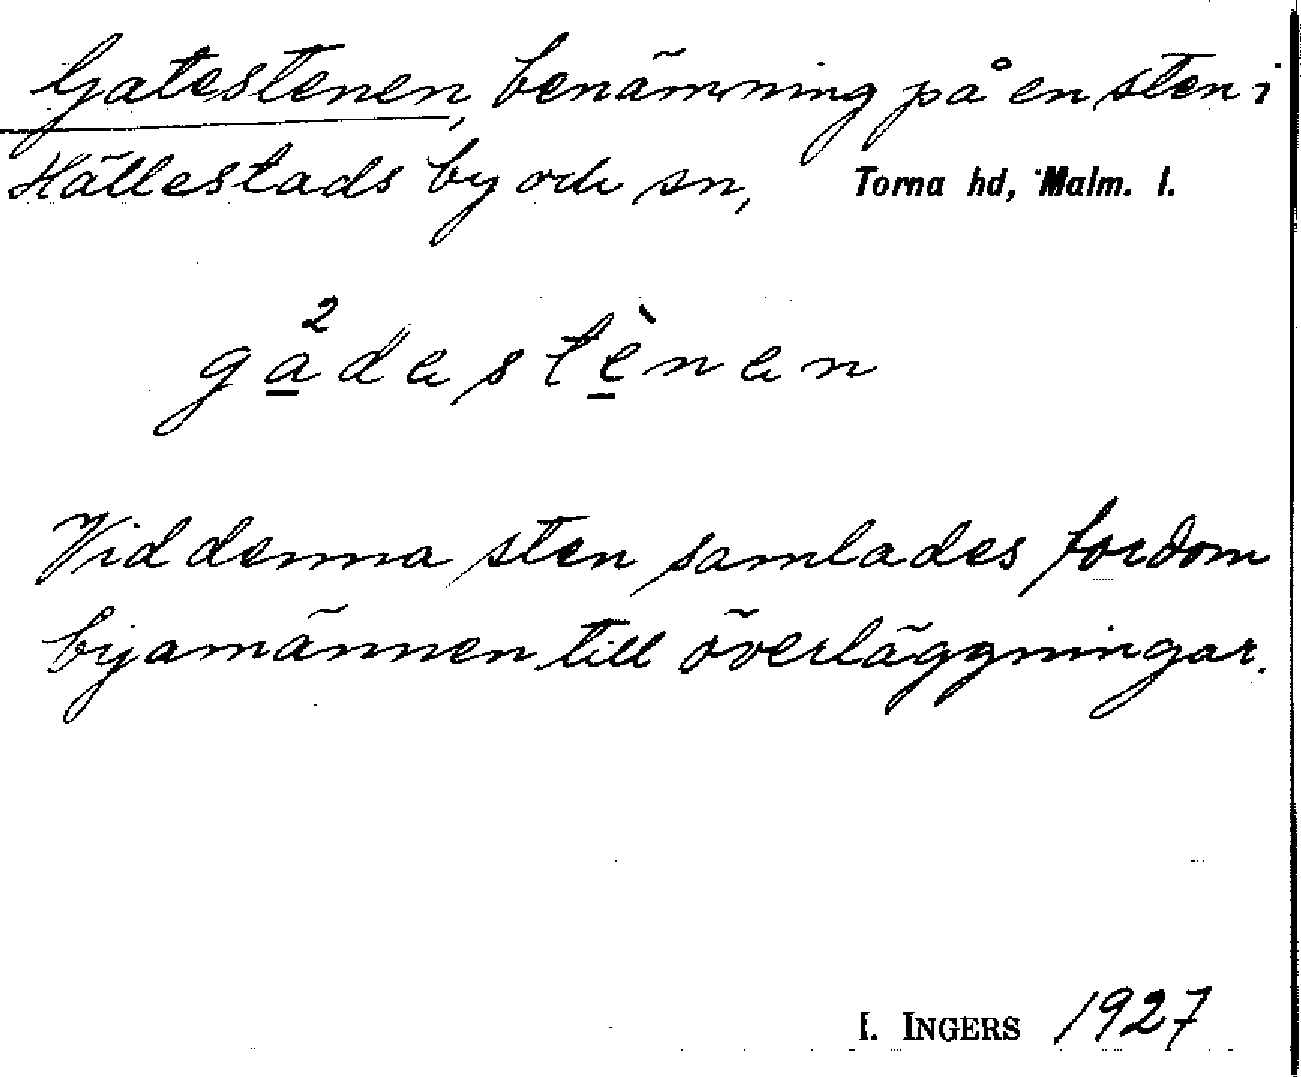 Gatestenen, benämning på en sten i
Hällestads by och sn, Torna hd, Malm. l.
ga²destènen
Vid denna sten samlades fordom
byamännen till överläggningar.
I. INGERS 1927